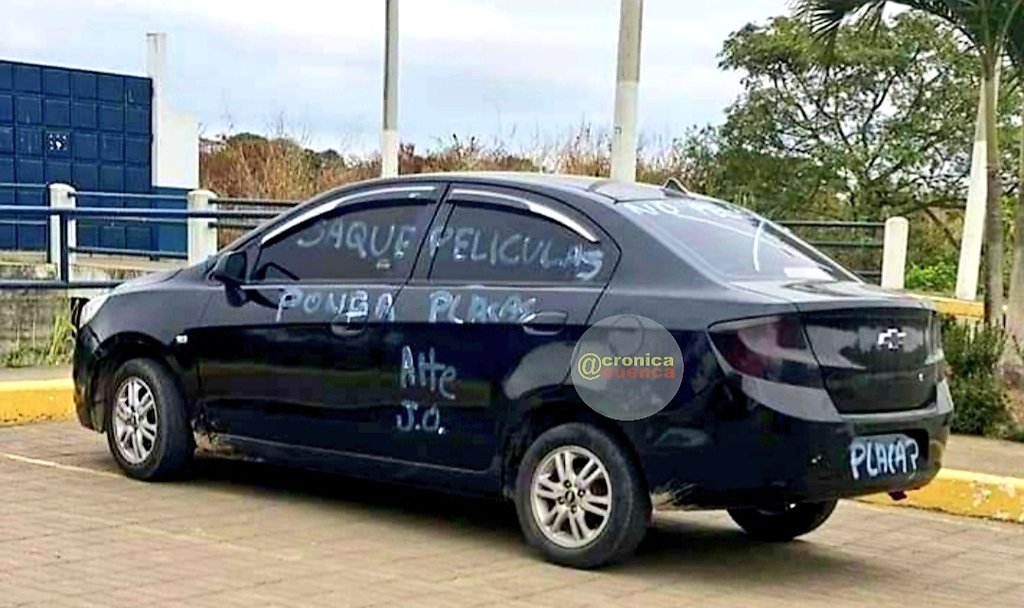 SAQUE PELICULAS
PONGA PLACAS
Atte
J.O.
@cronica
cuenca
PLACA?